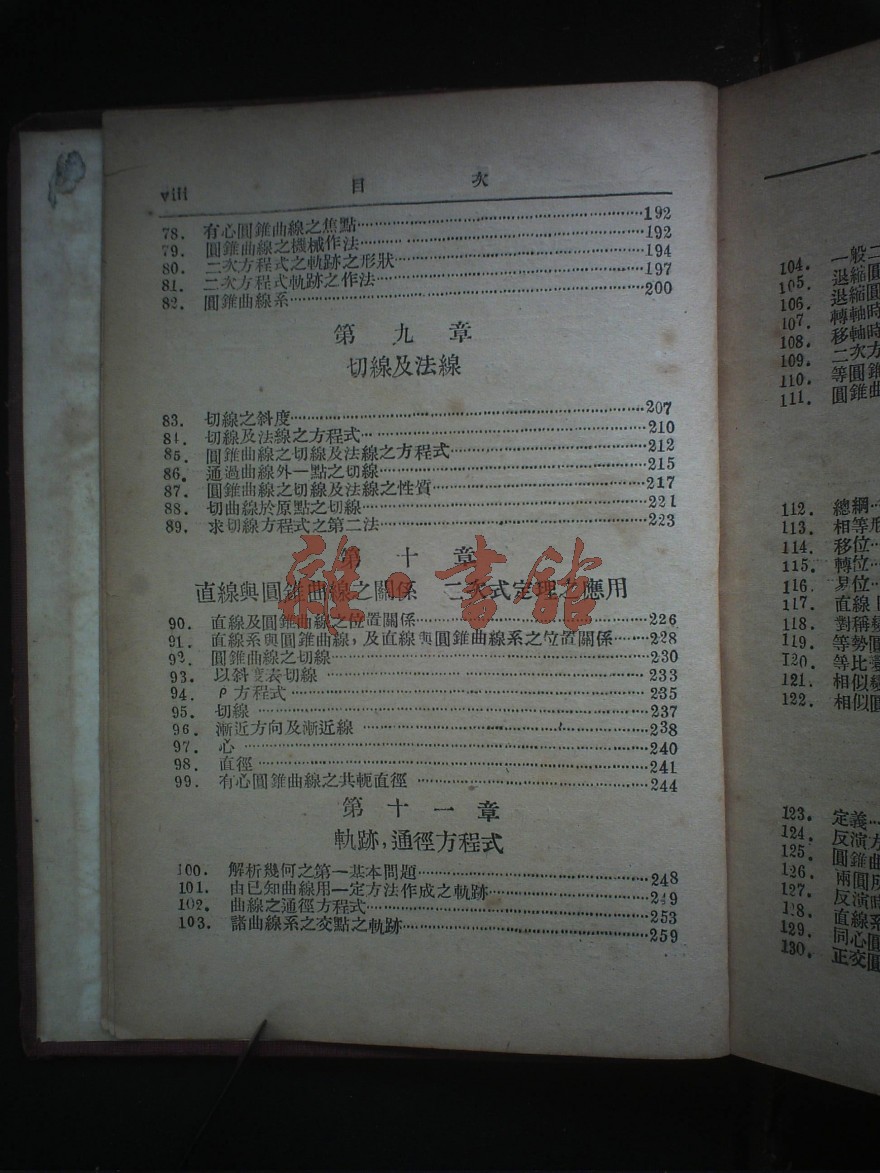 viii 目 次
78. 有心圓錐曲線之焦點……192
79. 圓錐曲線之機械作法……192
80. 二次方程式之軌跡之形狀……194
81. 二次方程式軌跡之作法……197
82. 圓錐曲線系……200
第 九 章
切線及法線
83. 切線之斜度……207
84. 切線及法線之方程式……210
85. 圓錐曲線之切線及法線之方程式……212
86. 通過曲線外一點之切線……215
87. 圓錐曲線之切線及法線之性質……217
88. 切曲線於原點之切線……221
89. 求切線方程式之第二法……223
第 十 章
直線與圓錐曲線之關係 二次式定理之應用
90. 直線及圓錐曲線之位置關係……226
91. 直線系與圓錐曲線,及直線與圓錐曲線系之位置關係……228
92. 圓錐曲線之切線……230
93. 以斜度表切線……233
94. ρ方程式……235
95. 切線……237
96. 漸近方向及漸近線……238
97. 心……240
98. 直徑……241
99. 有心圓錐曲線之共軛直徑……244
第 十 一 章
軌跡,通徑方程式
100. 解析幾何之第一基本問題……248
101. 由已知曲線用一定方法作成之軌跡……249
102. 曲線之通徑方程式……253
103. 諸曲線系之交點之軌跡……259
雜·書館
104. 一般二
105. 退縮圓
106. 退縮圓
107. 轉軸時
108. 移軸時
109. 二次方
110. 等圓錐
111. 圓錐曲
112. 總綱
113. 相等形
114. 移位
115. 轉位
116. 易位
117. 直線
118. 對稱變
119. 等勢圓
120. 等比變
121. 相似變
122. 相似圓
123. 定義
124. 反演方
125. 圓錐曲
126. 兩圓成
127. 反演時
128. 直線系
129. 同心圓
130. 正交圓